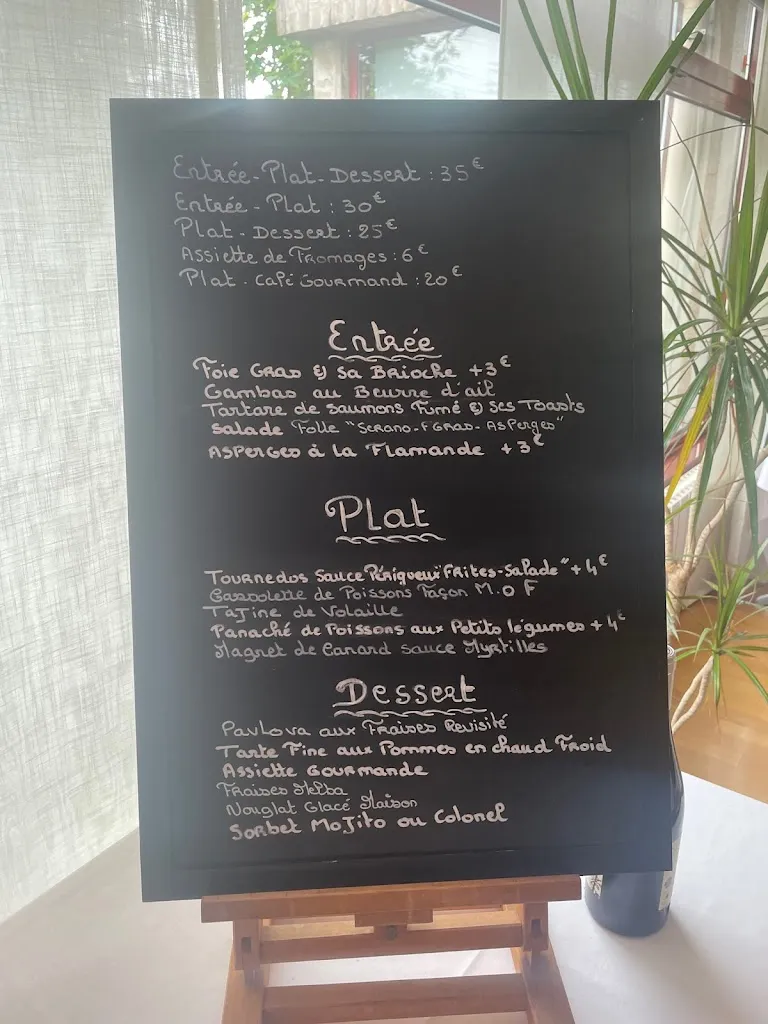 Entrée-Plat-Dessert : 35€
Entrée - Plat : 30€
Plat - Dessert : 25€
Assiette de Fromages : 6€
Plat - Café Gourmand : 20€
Entrée
Foie Gras & Sa Brioche +3€
Gambas au Beurre d'ail
Tartare de Saumons Fumé & Ses Toasts
Salade Folle "Serano-F Gras-Asperges"
Asperges à la Flamande +3€
Plat
Tournedos Sauce Périgueux "Frites-Salade" +4€
Cassolette de Poissons Façon M.O F
Tajine de Volaille
Panaché de Poissons aux Petits légumes +4€
Magret de Canard Sauce Myrtilles
Dessert
Pavlova aux Fraises Revisité
Tarte Fine aux Pommes en chaud Froid
Assiette Gourmande
Fraises Melba
Nouglat Glacé Maison
Sorbet Mojito ou Colonel